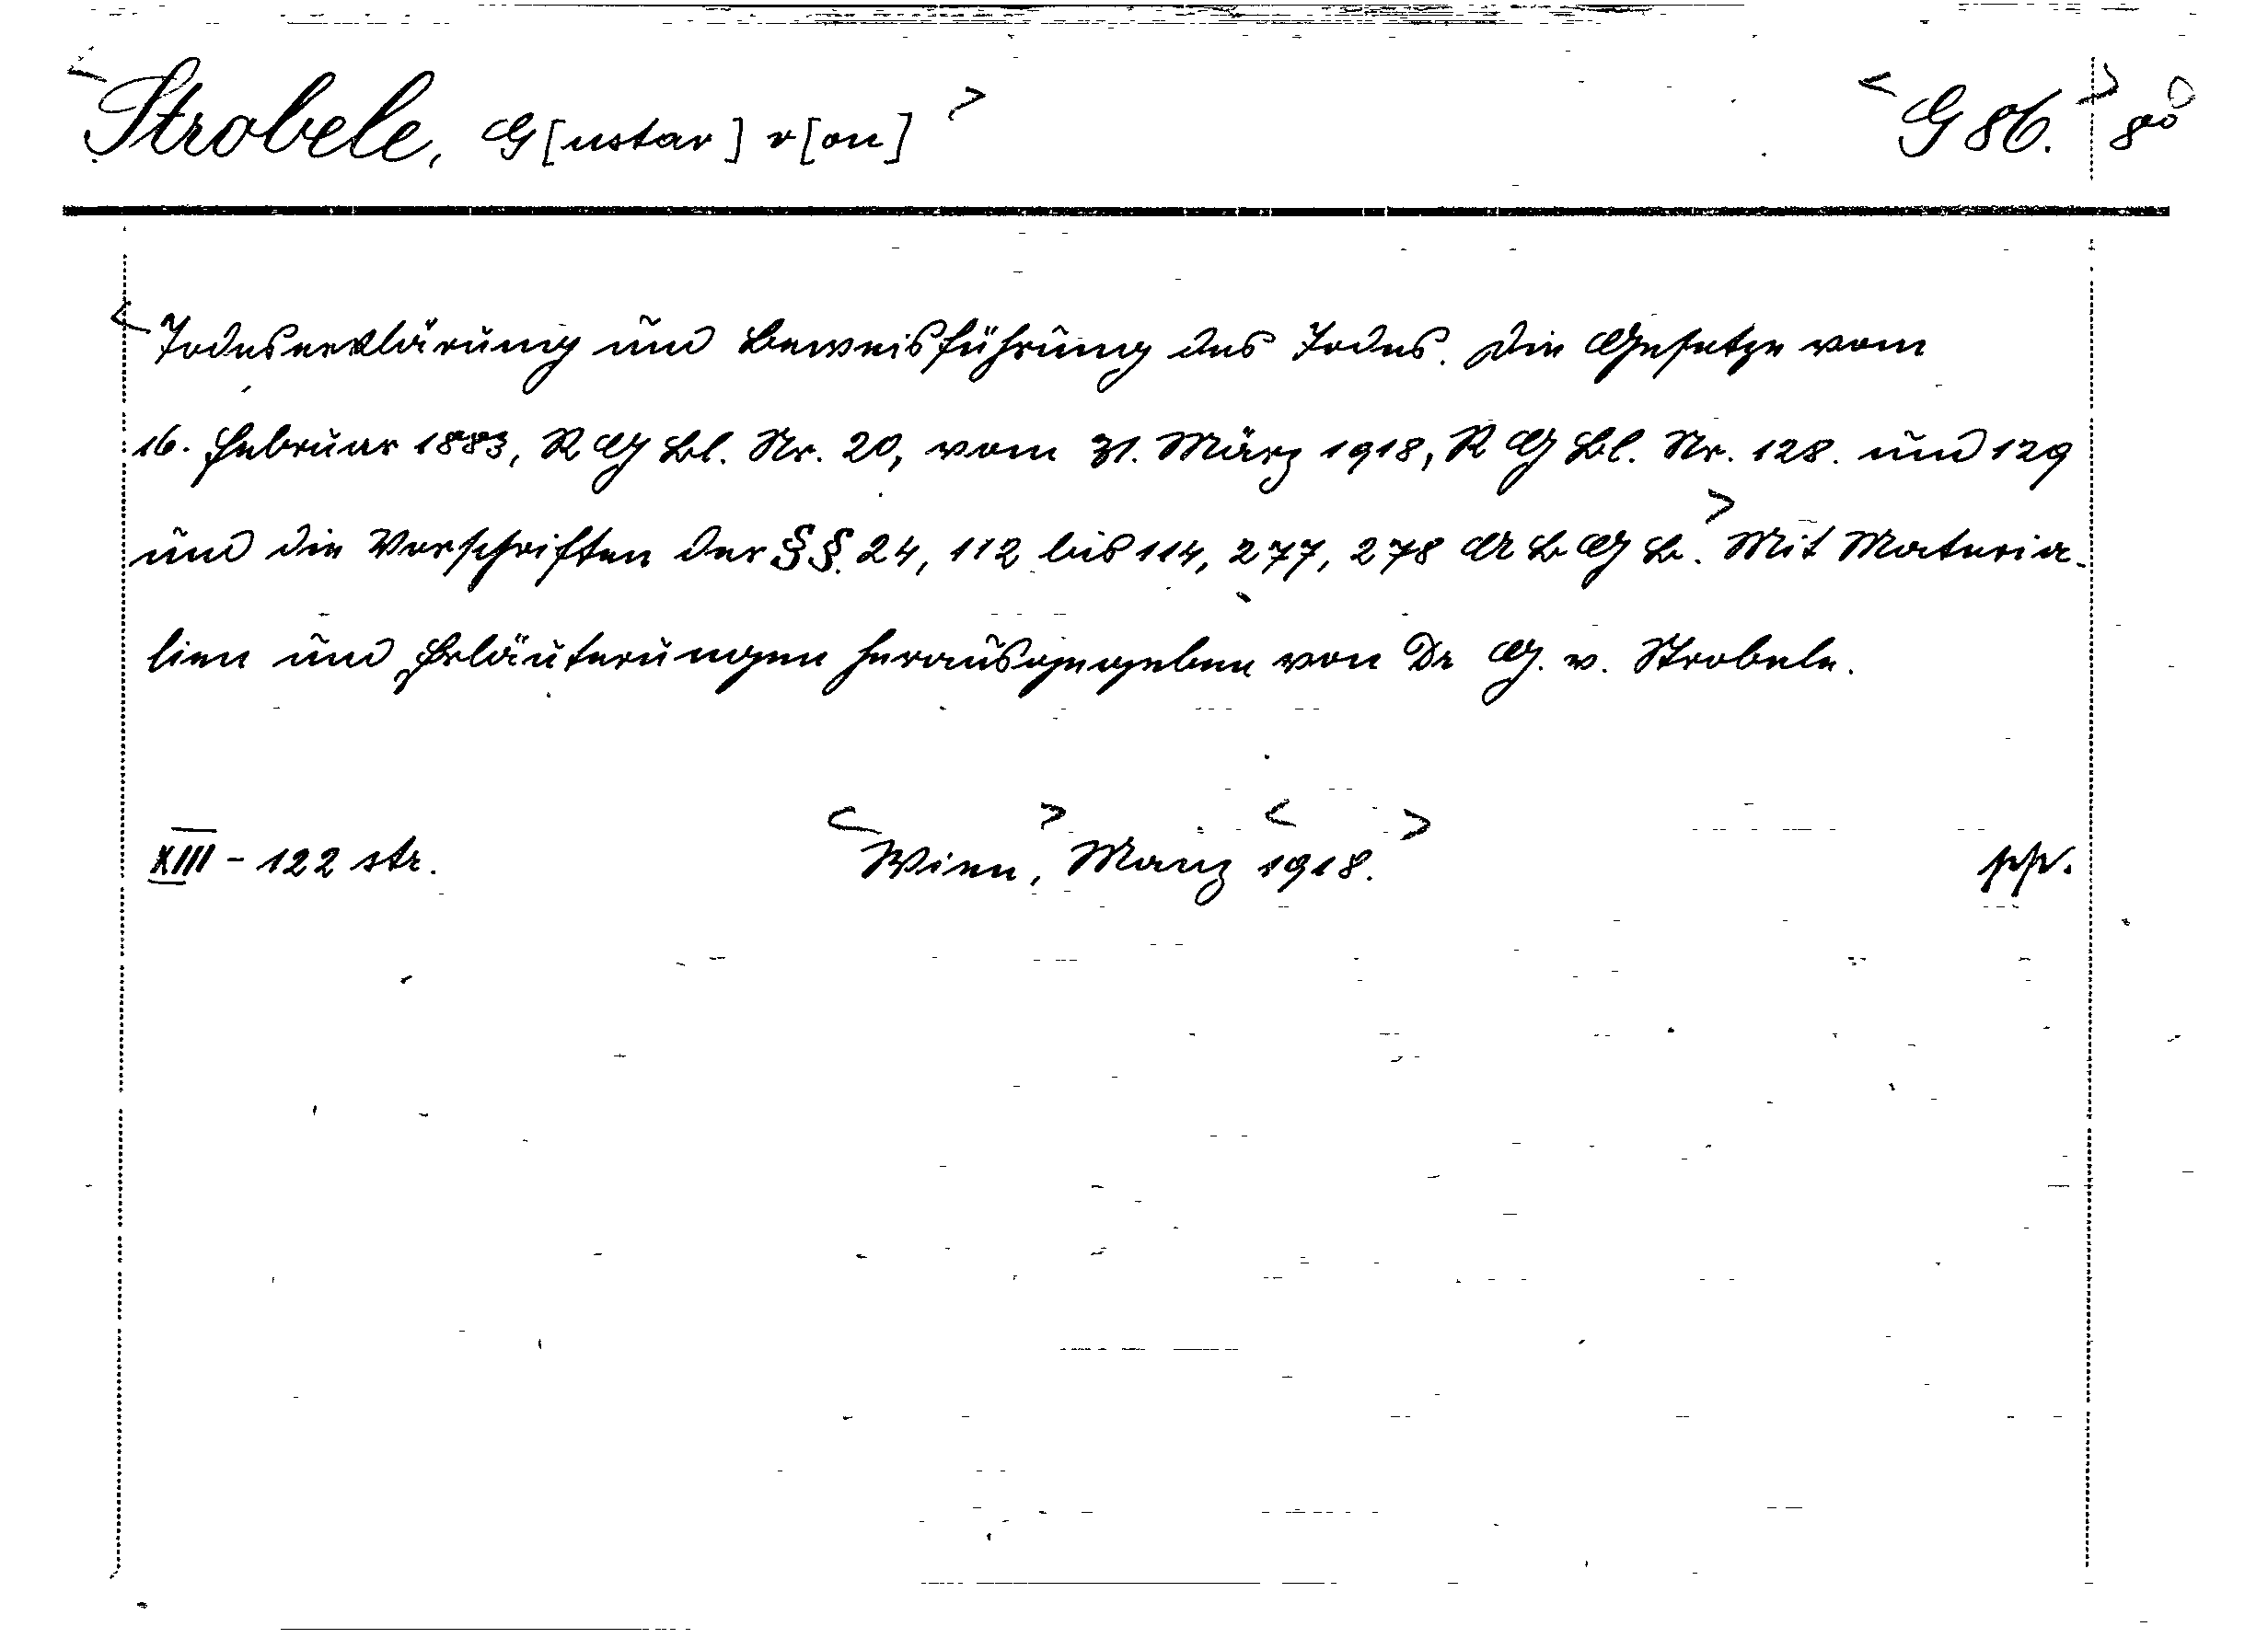 <Strobele, G[ustav] v[on]> <G 86.> 8°
<Todeserklärung und Beweisführung des Todes. Die Gesetze vom
16. Februar 1883, R G Bl. Nr. 20, vom 31. März 1918, R G Bl. Nr. 128. und 129
und die Vorschriften der §§. 24, 112 bis 114, 277, 278 A B G B.> Mit Materia-
lien und Erläuterungen herausgegeben von Dr G. v. Strobele.
XIII - 122 str. <Wien,> Manz <1918.>